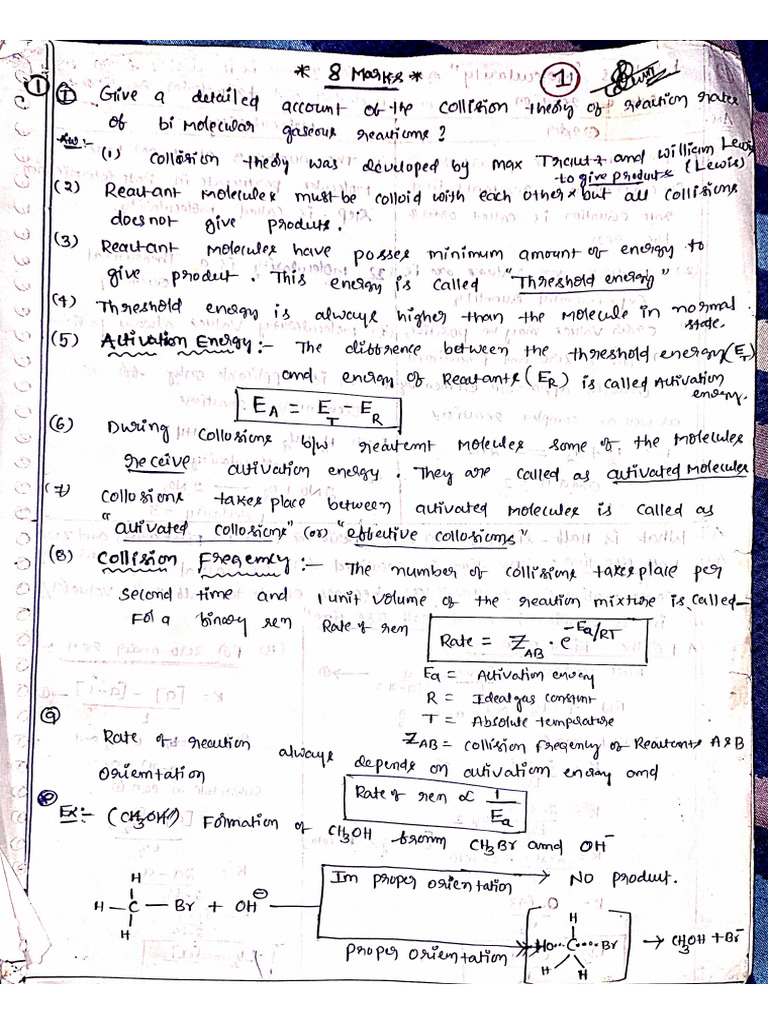 * 8 Marks * 1
1 I Give a detailed account of the collision theory of reaction rates
of bi molecular gaseous reactions?
Ans:- (1) Collosion theory was developed by max Trautz and william Lewis
to give products (Lewis)
(2) Reautant molecules must be colloid with each other × but all collisions
does not give products.
(3) Reautant molecules have posses minimum amount of energy to
give product. This energy is called "Threshold energy"
(4) Threshold energy is always higher than the molecule in normal
state.
(5) Activation Energy:- The diffrence between the threshold energy (E_T)
and energy of Reactants (E_R) is called Activation
energy.
E_A = E_T - E_R
(6) During collosions b/w reactant molecules some of the molecules
receive activation energy. They are called as activated molecules
(7) Collosions takes place between activated molecules is called as
"activated collosions" (or) "effective collosions"
(8) Collision Freqency:- The number of collisions takes place per
second time and 1 unit volume of the reaction mixture is called-
For a binary rxn Rate of rxn Rate = Z_AB . e^-Ea/RT
Ea = Activation energy
R = Ideal gas constant
T = Absolute temprature
Z_AB = collision freqency of Reactants A & B
9 Rate of reaction always depends on activation energy and
orientation
Rate of rxn ∝ 1/Ea
10 Ex:- (CH3OH) Formation of CH3OH from CH3Br and OH-
H
H - C - Br + OH⊖
H
Im proper orientation → No product.
Proper orientation
H
HO···C···Br → CH3OH + Br-
H H